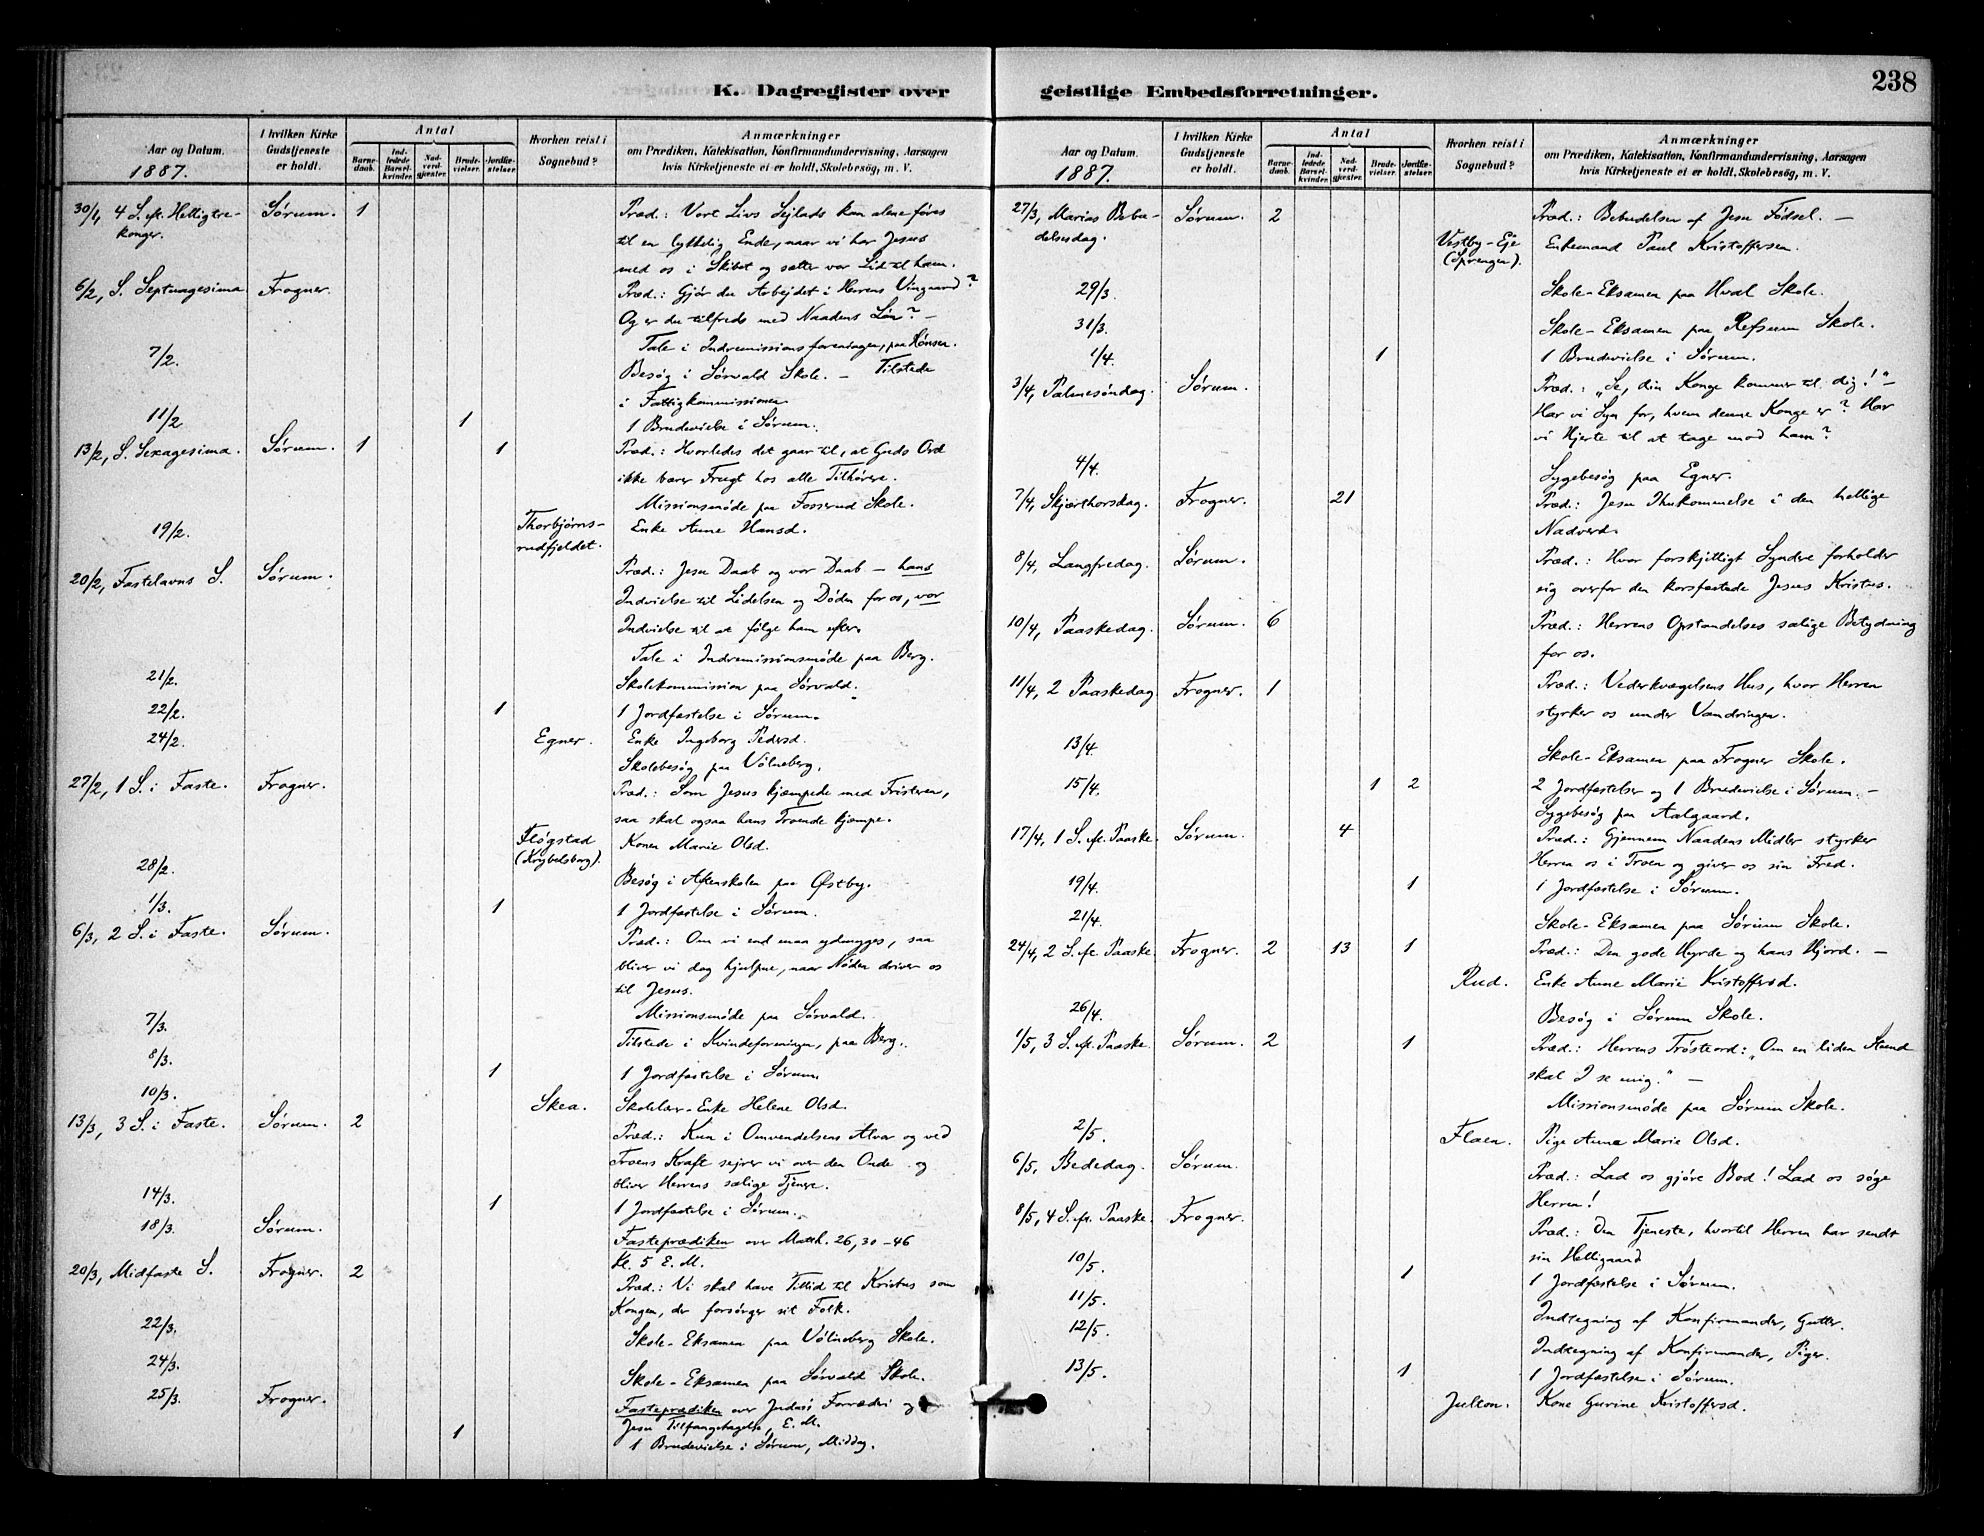 K. Dagregister over
Aar og Datum.
1887.
I hvilken Kirke Gudstjeneste er holdt.
Antal
Barnedaab.
Indledede Barselkvinder.
Nadverdgjester.
Brudevielser.
Jordfæstelser.
Hvorhen reist i Sognebud?
Anmærkninger
om Prædiken, Katekisation, Konfirmandundervisning, Aarsagen
hvis Kirketjeneste ei er holdt, Skolebesøg, m. V.
30/1, 4 S. ef. Helligtre- Sørum. 1 Præd.: Vort Livs Sejlads kan alene føres
konger. til en lykkelig Ende, naar vi har Jesus
med os i Skibet og sætter vor Lid til ham.
6/2, S. Septuagesima Frogner. Præd.: Gjør du Arbejdet i Herrens Vingaard?
Og er du tilfreds med Naadens Løn? –
Tale i Indremissionsforeningen, paa Hønsen.
7/2. Besøg i Sørvald Skole. – Tilstede
i Fattigkommissionen.
11/2 1 1 Brudevielse i Sørum.
13/2, S. Sexagesima. Sørum. 1 1 Præd.: Hvorledes det gaar til, at Guds Ord
ikke bærer Frugt hos alle Tilhørere.
Missionsmøde paa Fosserud Skole.
19/2. Thorbjørns- Enke Anne Hansd.
rudfjeldet.
20/2, Fastelavns S. Sørum. Præd.: Jesu Daab og vor Daab – hans
Indvielse til Lidelsen og Døden for os, vor
Indvielse til at følge ham efter.
Tale i Indremissionsmøde paa Berg.
21/2. Skolekommission paa Sørvald.
22/2. 1 1 Jordfæstelse i Sørum.
24/2. Egner. Enke Ingeborg Pedersd.
Skolebesøg paa Vølneberg.
27/2, 1 S. i Faste. Frogner. Præd.: Som Jesus kjæmpede med Fristeren,
saa skal ogsaa hans Troende kjæmpe.
Fløgstad Konen Marie Olsd.
(Krybelsborg).
28/2. Besøg i Aftenskolen paa Østby.
1/3. 1 1 Jordfæstelse i Sørum.
6/3, 2 S. i Faste. Sørum. Præd.: Om vi end maa ydmyges, saa
bliver vi dog hjulpne, naar Nøden driver os
til Jesus.
Missionsmøde paa Sørvald.
7/3. Tilstede i Kvindeforeningen, paa Berg.
8/3. 1 1 Jordfæstelse i Sørum.
10/3. Skea. Skolelær.-Enke Helene Olsd.
13/3, 3 S. i Faste. Sørum. 2 Præd.: Kun i Omvendelsens Alvor og ved
Troens Kraft sejrer vi over den Onde og
bliver Herrens sælige Tjenere.
14/3. 1 1 Jordfæstelse i Sørum.
18/3. Sørum. Fasteprædiken over Matth. 26, 30–46
Kl. 5 E.M.
20/3, Midfaste S. Frogner. 2 Præd.: Vi skal have Tillid til Kristus som
Kongen, der forsørger sit Folk.
22/3. Skole-Eksamen paa Vølneberg Skole.
24/3. Skole-Eksamen paa Sørvald Skole.
25/3. Frogner. Fasteprædiken over Judas's Forræderi og
Jesu Tilfangetagelse, E.M.
1 1 Brudevielse i Sørum, Middag.
geistlige Embedsforretninger.
238
Aar og Datum.
1887.
I hvilken Kirke Gudstjeneste er holdt.
Antal
Barnedaab.
Indledede Barselkvinder.
Nadverdgjester.
Brudevielser.
Jordfæstelser.
Hvorhen reist i Sognebud?
Anmærkninger
om Prædiken, Katekisation, Konfirmandundervisning, Aarsagen
hvis Kirketjeneste ei er holdt, Skolebesøg, m. V.
27/3, Marias Bebu- Sørum. 2 Præd.: Bebudelsen af Jesu Fødsel. –
delsesdag. Vestby-Eje Enkemand Paul Kristoffersen.
(Sprengen).
29/3. Skole-Eksamen paa Hval Skole.
31/3. Skole-Eksamen paa Refsum Skole.
1/4. 1 1 Brudevielse i Sørum.
3/4, Palmesøndag. Sørum. Præd.: „Se, din Konge kommer til dig!“ –
Har vi Syn for, hvem denne Konge er? Har
vi Hjerte til at tage mod ham?
4/4. Sygebesøg paa Egner.
7/4, Skjærthorsdag. Frogner. 21 Præd.: Jesu Ihukommelse i den hellige
Nadverd.
8/4, Langfredag. Sørum. Præd.: Hvor forskjelligt Syndere forholder
sig overfor den korsfæstede Jesus Kristus.
10/4, Paaskedag. Sørum. 6 Præd.: Herrens Opstandelses sælige Betydning
for os.
11/4, 2 Paaskedag Frogner. 1 Præd.: Vederkvægelsens Hus, hvor Herren
styrker os under Vandringen.
13/4. Skole-Eksamen paa Frogner Skole.
15/4. 1 2 2 Jordfæstelser og 1 Brudevielse i Sørum. –
Sygebesøg paa Aalgaard.
17/4, 1 S. ef. Paaske. Sørum. 4 Præd.: Gjennem Naadens Midler styrker
Herren os i Troen og giver os sin Fred.
19/4. 1 1 Jordfæstelse i Sørum.
21/4. Skole-Eksamen paa Sørum Skole.
24/4, 2 S. ef. Paaske. Frogner. 2 13 1 Præd.: Den gode Hyrde og hans Hjord. –
Rud. Enke Anne Marie Kristoffersd.
26/4. Besøg i Sørum Skole.
1/5, 3 S. ef. Paaske. Sørum. 2 1 Præd.: Herrens Trøsteord: „Om en liden Stund
skal I se mig.“ –
Missionsmøde paa Sørum Skole.
2/5. Flaen. Pige Anna Marie Olsd.
6/5, Bededag. Sørum. Præd.: Lad os gjøre Bod! Lad os søge
Herren!
8/5, 4 S. ef. Paaske. Frogner. Præd.: Den Tjeneste, hvortil Herren har sendt
sin Helligaand
10/5. 1 1 Jordfæstelse i Sørum.
11/5. Indtegning af Konfirmander, Gutter.
12/5. Indtegning af Konfirmander, Piger.
13/5. 1 1 Jordfæstelse i Sørum.
Julton. Kone Gurine Kristoffersd.